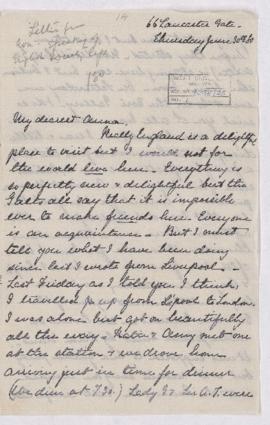 Letter fr
66 Lancaster Gate.
Thursday June 30th
My dearest Anna.
Really England is a delightful
place to visit but I would not for
the world live here. Everything is
so perfectly new & delightful but the
Galts all say that it is impossible
ever to make friends here. Everyone
is an acquaintance. But I must
tell you what I have been doing
since last I wrote from Liverpool.
Last Friday as I told you I think,
I travelled up from L'pool to London.
I was alone but got on beautifully
all the way. & Amy met me
at the station & we drove home
arriving just in time for dinner
(We dine at 7.30.) Lady & Sir A.T. were